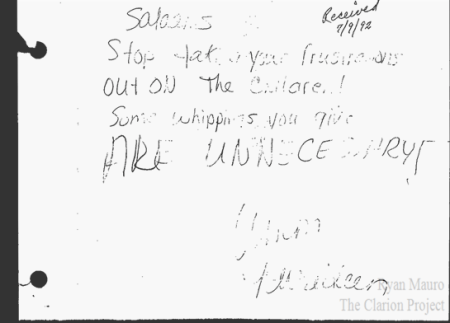 Salaams
Received
7/9/92
Stop taking your frustrations
out on The Children!
Some whippings you give
ARE UNNECESSARY!
Ryan Mauro
The Clarion Project